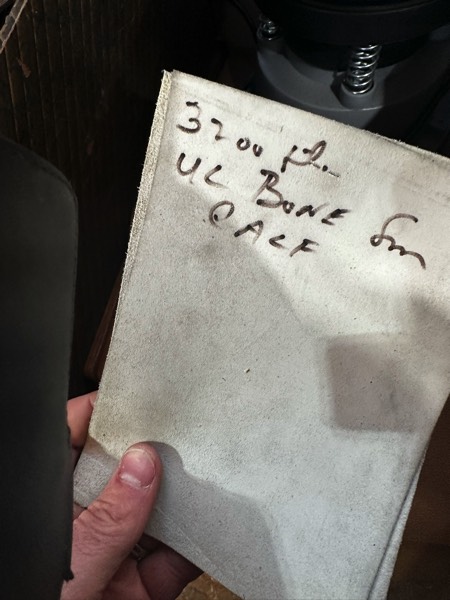 3200 pl.
UL BONE Sm
CALF